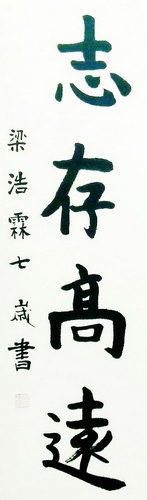 志存高遠
梁浩霖七歲書